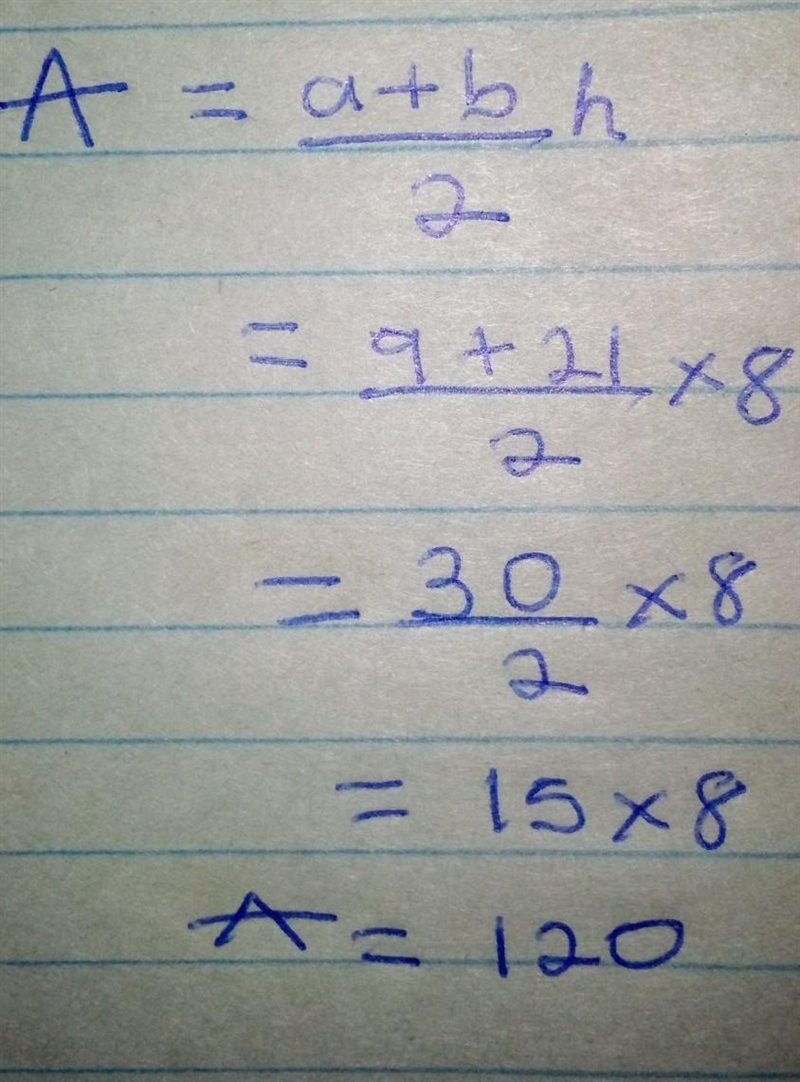 A = a+b/2 h
= 9+21/2 ×8
= 30/2 ×8
= 15×8
A = 120